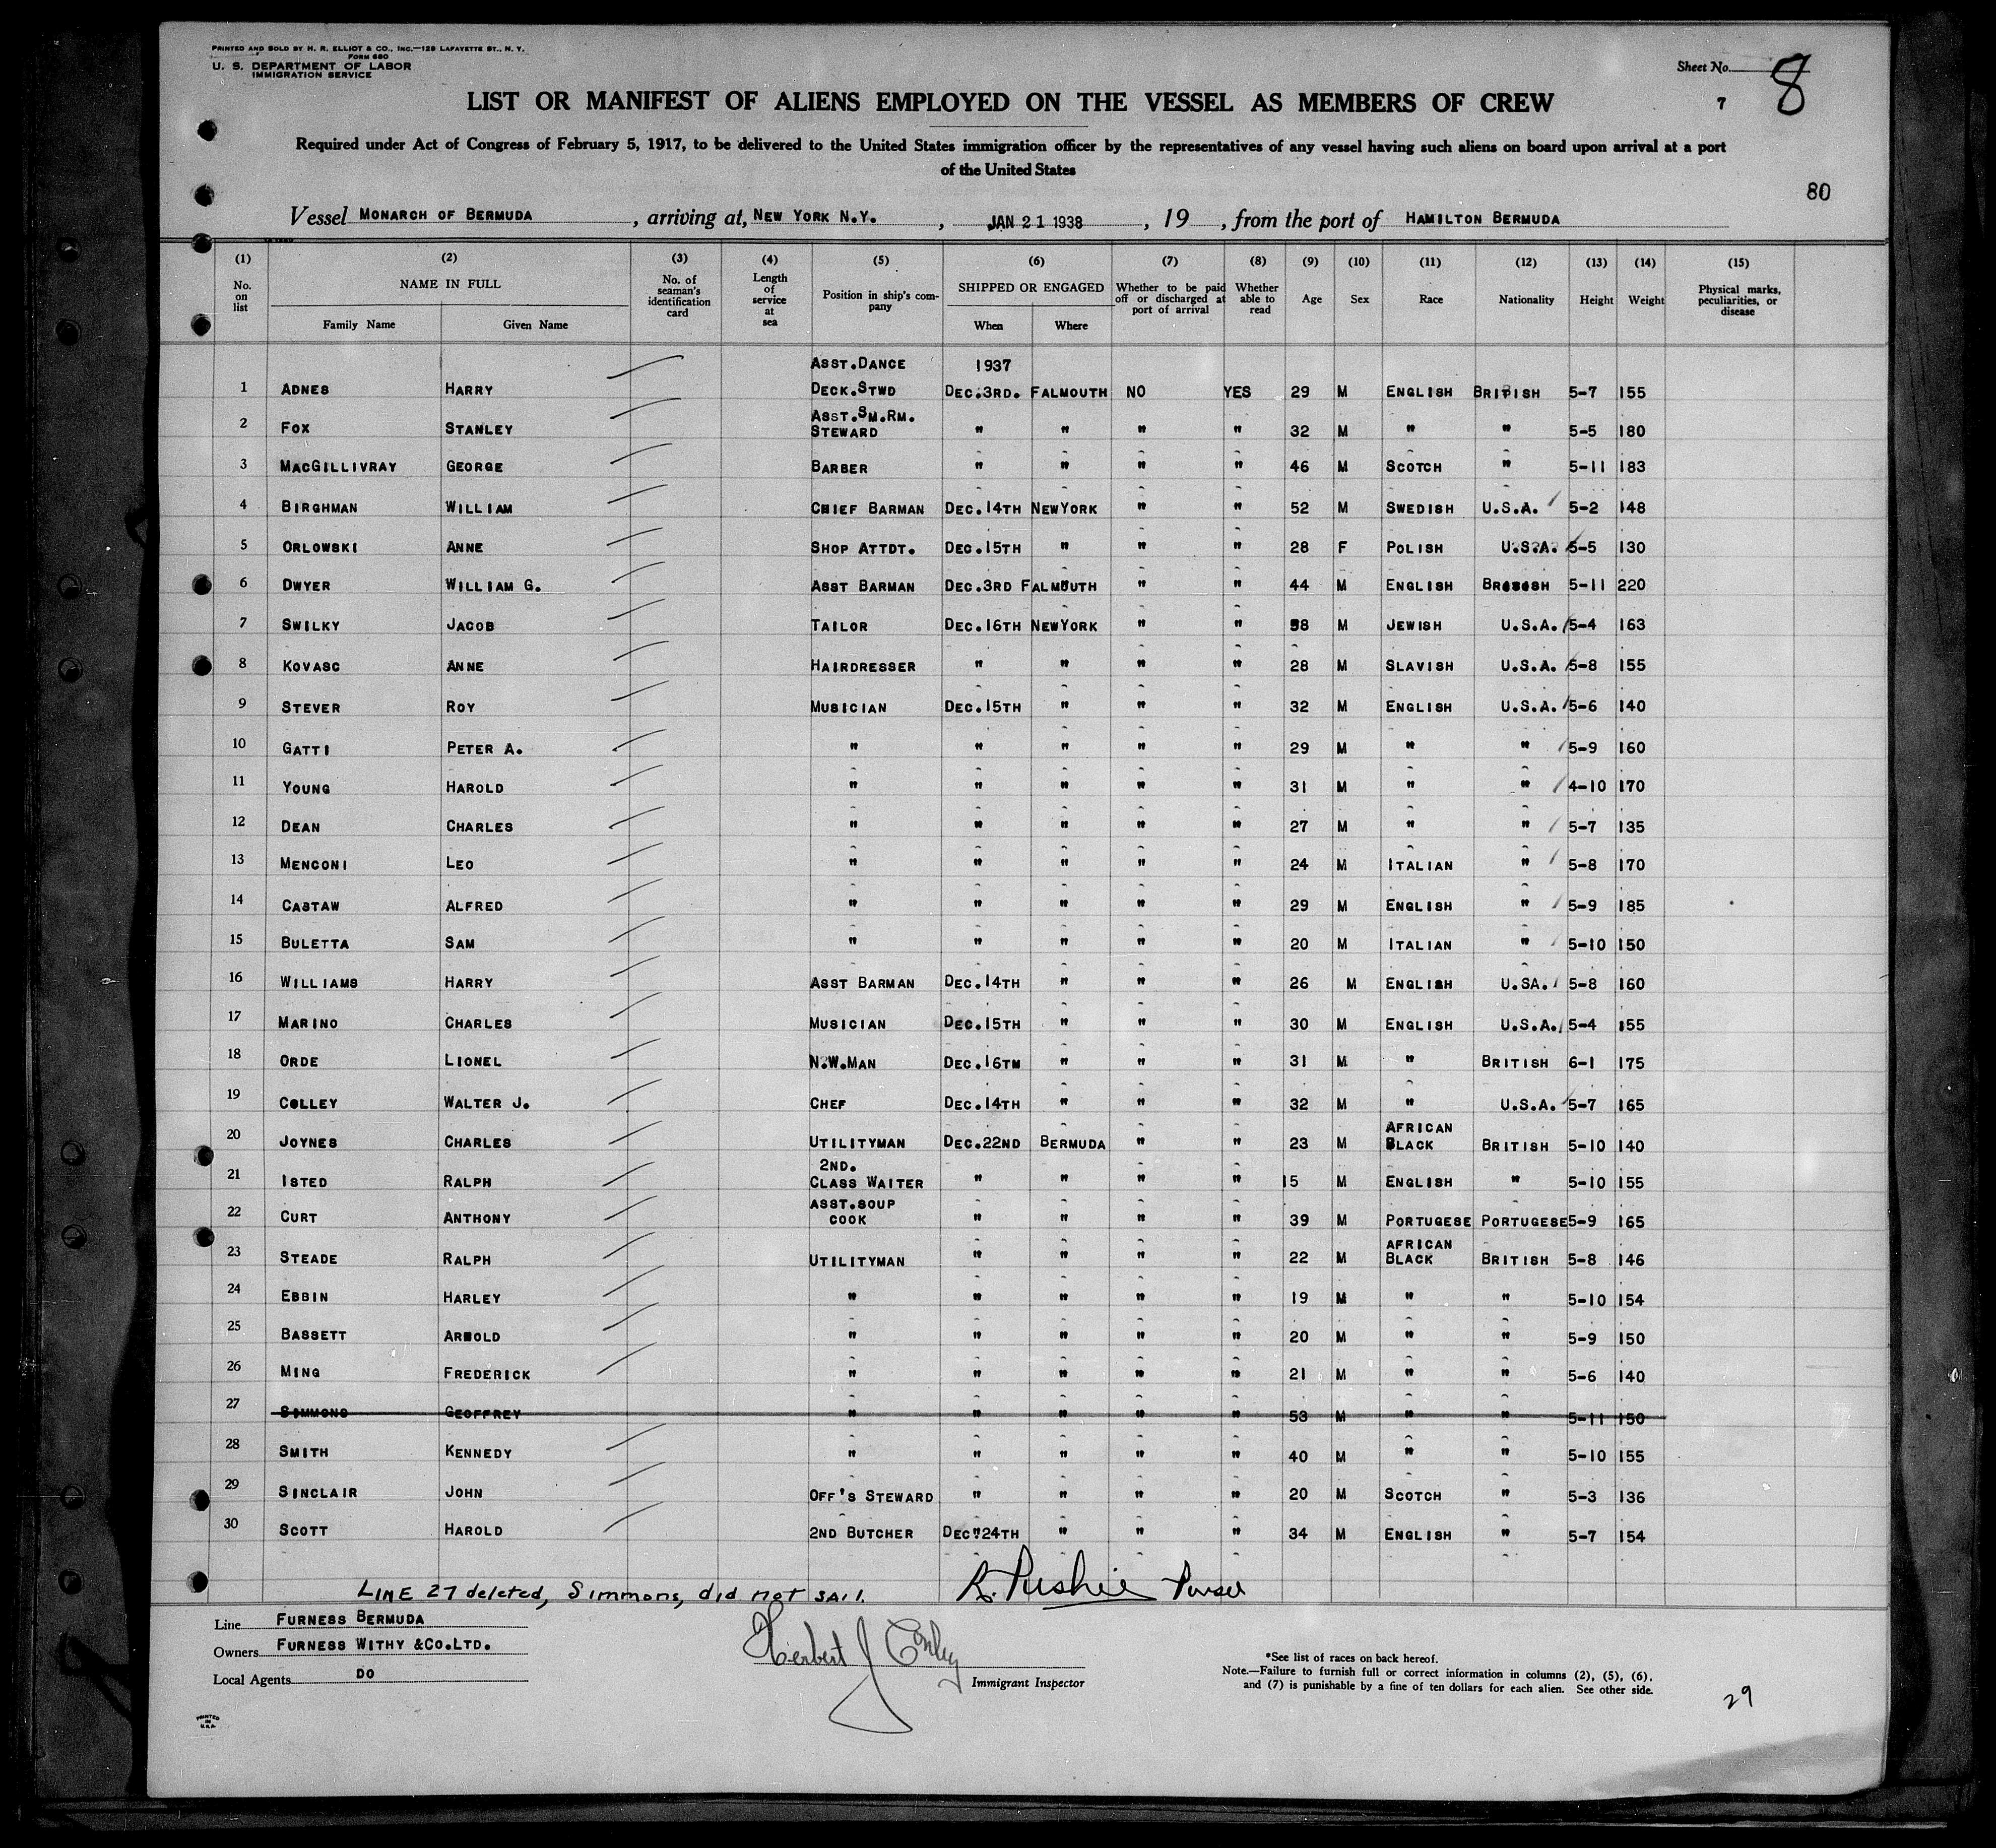 PRINTED AND SOLD BY H. R. ELLIOT & CO., INC.—129 LAFAYETTE ST., N. Y.
FORM 680
U. S. DEPARTMENT OF LABOR
IMMIGRATION SERVICE
Sheet No. 8
7
LIST OR MANIFEST OF ALIENS EMPLOYED ON THE VESSEL AS MEMBERS OF CREW
Required under Act of Congress of February 5, 1917, to be delivered to the United States immigration officer by the representatives of any vessel having such aliens on board upon arrival at a port
of the United States
80
Vessel MONARCH OF BERMUDA, arriving at, NEW YORK N.Y., JAN 21 1938, 19 , from the port of HAMILTON BERMUDA
(1) (2) (3) (4) (5) (6) (7) (8) (9) (10) (11) (12) (13) (14) (15)
No. on list NAME IN FULL Family Name Given Name No. of seaman's identification card Length of service at sea Position in ship's company SHIPPED OR ENGAGED When Where Whether to be paid off or discharged at port of arrival Whether able to read Age Sex Race Nationality Height Weight Physical marks, peculiarities, or disease
ASST.DANCE 1937
1 ADNES HARRY DECK.STWD DEC.3RD. FALMOUTH NO YES 29 M ENGLISH BRITISH 5-7 155
ASST.SM.RM.
2 FOX STANLEY STEWARD " " " " 32 M " " 5-5 180
3 MACGILLIVRAY GEORGE BARBER " " " " 46 M SCOTCH " 5-11 183
4 BIRGHMAN WILLIAM CHIEF BARMAN DEC.14TH NEWYORK " " 52 M SWEDISH U.S.A. 5-2 148
5 ORLOWSKI ANNE SHOP ATTDT. DEC.15TH " " " 28 F POLISH U.S.A. 5-5 130
6 DWYER WILLIAM G. ASST BARMAN DEC.3RD FALMOUTH " " 44 M ENGLISH 5-11 220
7 SWILKY JACOB TAILOR DEC.16TH NEWYORK " " 58 M JEWISH U.S.A. 5-4 163
8 KOVASC ANNE HAIRDRESSER " " " " 28 M SLAVISH U.S.A. 5-8 155
9 STEVER ROY MUSICIAN DEC.15TH " " " 32 M ENGLISH U.S.A. 5-6 140
10 GATTI PETER A. " " " " " 29 M " " 5-9 160
11 YOUNG HAROLD " " " " " 31 M " " 4-10 170
12 DEAN CHARLES " " " " " 27 M " " 5-7 135
13 MENCONI LEO " " " " " 24 M ITALIAN " 5-8 170
14 CASTAW ALFRED " " " " " 29 M ENGLISH " 5-9 185
15 BULETTA SAM " " " " " 20 M ITALIAN " 5-10 150
16 WILLIAMS HARRY ASST BARMAN DEC.14TH " " " 26 M ENGLISH U.SA. 5-8 160
17 MARINO CHARLES MUSICIAN DEC.15TH " " " 30 M ENGLISH U.S.A. 5-4 155
18 ORDE LIONEL N.W.MAN DEC.16TH " " " 31 M " BRITISH 6-1 175
19 COLLEY WALTER J. CHEF DEC.14TH " " " 32 M " U.S.A. 5-7 165
AFRICAN
20 JOYNES CHARLES UTILITYMAN DEC.22ND BERMUDA " " 23 M BLACK BRITISH 5-10 140
2ND.
21 ISTED RALPH CLASS WAITER " " " " 15 M ENGLISH " 5-10 155
ASST.SOUP
22 CURT ANTHONY COOK " " " " 39 M PORTUGESE PORTUGESE 5-9 165
AFRICAN
23 STEADE RALPH UTILITYMAN " " " " 22 M BLACK BRITISH 5-8 146
24 EBBIN HARLEY " " " " " 19 M " " 5-10 154
25 BASSETT ARNOLD " " " " " 20 M " " 5-9 150
26 MING FREDERICK " " " " " 21 M " " 5-6 140
27 SIMMONS GEOFFREY " " " " " 53 M " " 5-11 150
28 SMITH KENNEDY " " " " " 40 M " " 5-10 155
29 SINCLAIR JOHN OFF'S STEWARD " " " " 20 M SCOTCH " 5-3 136
30 SCOTT HAROLD 2ND BUTCHER DEC"24TH " " " 34 M ENGLISH " 5-7 154
LINE 27 deleted, Simmons, did not SAIL. Purser
Line FURNESS BERMUDA
Owners FURNESS WITHY &CO.LTD.
Local Agents DO
Herbert J Conley
Immigrant Inspector
*See list of races on back hereof.
Note.—Failure to furnish full or correct information in columns (2), (5), (6),
and (7) is punishable by a fine of ten dollars for each alien. See other side.
29
PRINTED
IN
U.S.A.